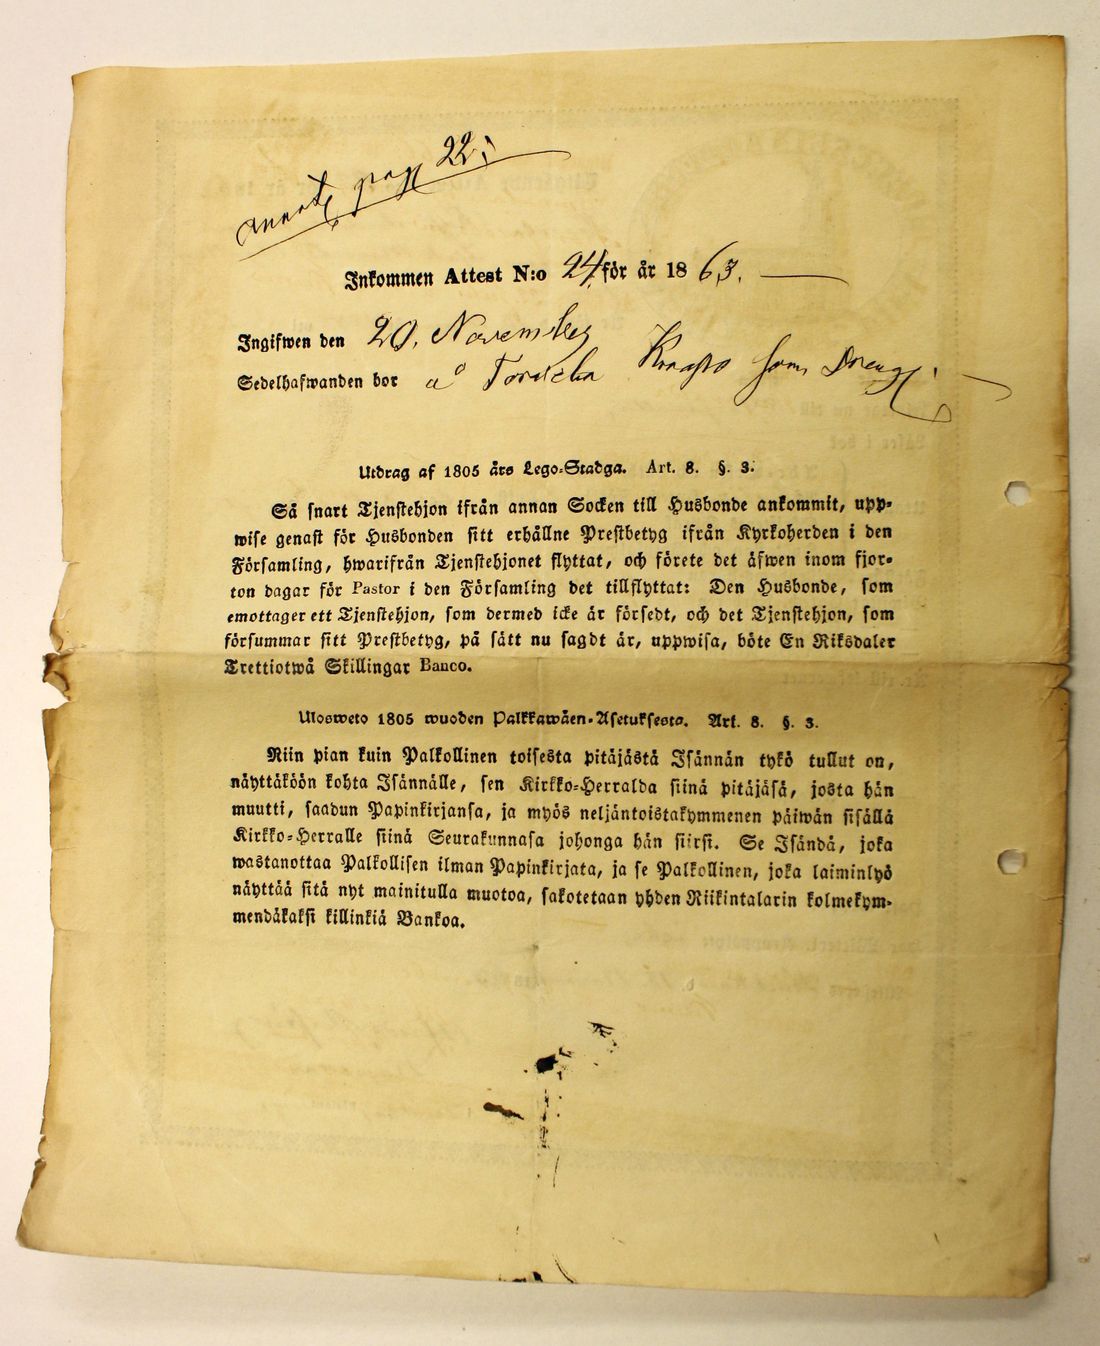 pag 22.
Inkommen Attest N:o 24 för år 1863.
Ingifwen den 20. November
Sedelhafwanden bor å som Dreng.
Utdrag af 1805 års Lego-Stadga. Art. 8. §. 3.
Så snart Tjenstehjon ifrån annan Socken till Husbonde ankommit, upp-
wise genast för Husbonden sitt erhållne Prestbetyg ifrån Kyrkoherden i den
Församling, hwarifrån Tjenstehjonet flyttat, och förete det äfwen inom fjor-
ton dagar för Pastor i den Församling det tillflyttat: Den Husbonde, som
emottager ett Tjenstehjon, som dermed icke är försedt, och det Tjenstehjon, som
försummar sitt Prestbetyg, på sätt nu sagdt är, uppwisa, böte En Riksdaler
Trettiotwå Skillingar Banco.
Ulosweto 1805 wuoden Palkkawäen-Asetuksesta. Art. 8. §. 3.
Niin pian kuin Palkollinen toisesta pitäjästä Isännän tykö tullut on,
näyttäköön kohta Isännälle, sen Kirkko-Herralda siinä pitäjäsä, josta hän
muutti, saadun Papinkirjansa, ja myös neljäntoistakymmenen päiwän sisällä
Kirkko-Herralle siinä Seurakunnasa johonga hän siirsi. Se Isändä, joka
wastanottaa Palkollisen ilman Papinkirjata, ja se Palkollinen, joka laiminlyö
näyttää sitä nyt mainitulla muotoa, sakotetaan yhden Riikintalarin kolmekym-
mendäkaksi killinkiä Bankoa.